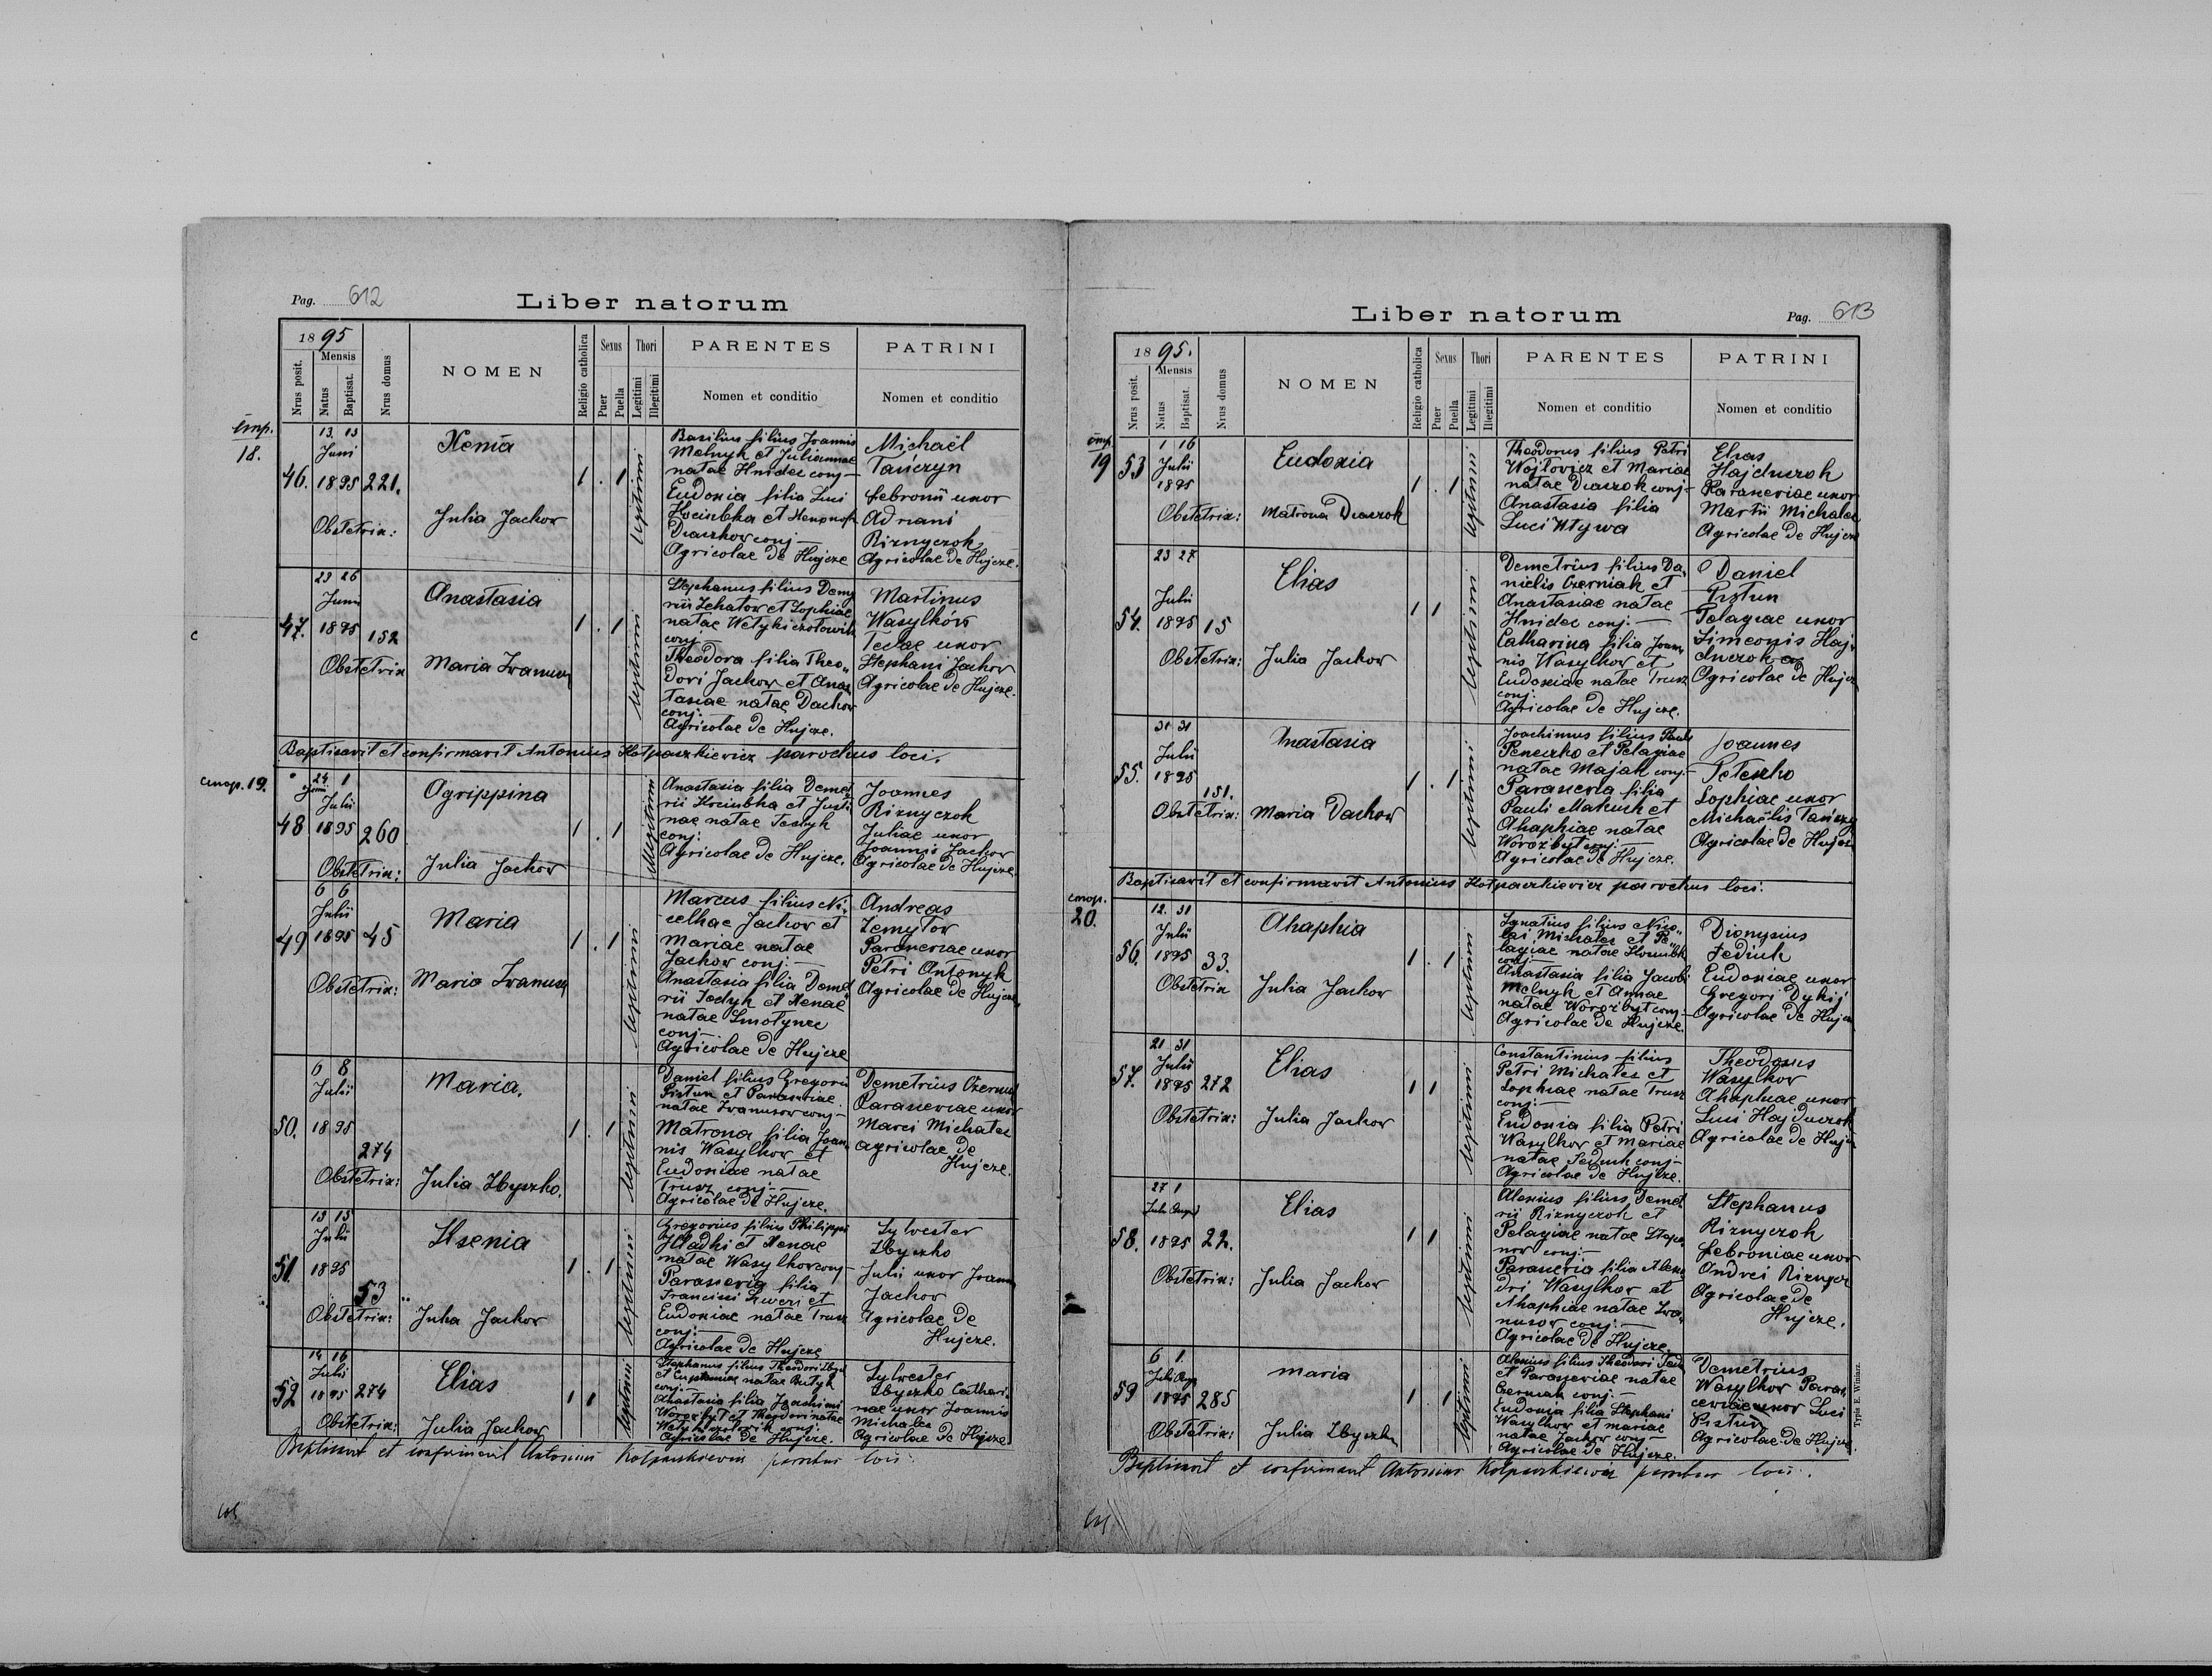 Pag. 612
Liber natorum
1895
Nrus posit.
Mensis
Natus
Baptisat.
Nrus domus
NOMEN
Religio catholica
Sexus
Puer
Puella
Thori
Legitimi
Illegitimi
PARENTES
Nomen et conditio
PATRINI
Nomen et conditio
18.
46.
13. 13
Juni
1895
221.
Xenia
Obstetrix:
Julia Jachow
1 . 1
legitimi
Basilius filius Joannis
Melnyk et Juliannae
natae Hnidec conj—
Eudoxia filia Luci
Kociubka et
conj—
Agricolae de Hujcze
Michaël
Tańczyn
Febronii uxor
Adriani
Riznyczok
Agricolae de Hujcze.
47.
23 26
Junii
1895
152
Anastasia
Obstetrix
Maria
1 . 1
legitimi
Stephanus filius
et Sophiae
natae
conj—
Theodora filia Theo„
dori Jachow et Anas
tasiae natae Dachow
conj:
Agricolae de Hujcze.
Martinus
Wasylków
Teclae uxor
Stephani Jachow
Agricolae de Hujcze.
Baptisavit et confirmavit Antonius Kolpaczkiewicz parochus loci.
стор. 19.
48
24 1
Juni
Julii
1895
260
Agrippina
Obstetrix:
Julia Jachow
1 . 1
Illegitimi
Anastasia filia Demet
rii Kociubka et Justi
nae natae
conj:
Agricolae de Hujcze.
Joannes
Riznyczok
Juliae uxor
Joannis Jachow
Agricolae de Hujcze
49
6 6
Julii
1895
45
Maria
Obstetrix:
Maria
1 . 1
legitimi
Marcus filius Mi„
Jachow et
Mariae natae
Jachow conj:—
Anastasia filia Demet
rii et Xenae
natae Smolynec
conj—
Agricolae de Hujcze
Andreas
Paraneviae uxor
Petri Antonyk
Agricolae de Hujcze
50.
6 8
Julii
1895
274
Maria.
Obstetrix:
Julia Zbyszko.
1 . 1
legitimi
Daniel filius Gregorii
Pistun et
natae Iwanusow conj—
Matrona filia Joan„
nis Wasylkow et
Eudoxiae natae
Trusz conj:—
Agricolae de Hujcze.
Demetrius
uxor
Marci Michalec
agricolae de
Hujcze.
51.
13 15
Julii
1895
53
Ksenia
Obstetrix:
Julia Jachow
1 . 1
legitimi
Gregorius filius Philippi
Hladki et Xenae
natae Wasylkow conj—
filia
Francisci et
Eudoxiae natae Trusz
conj:—
Agricolae de Hujcze
Sylvester
Zbyszko
Julii uxor Joannis
Jachow
Agricolae de
Hujcze.
52
14 16
Julii
1895
274
Elias
Obstetrix:
Julia Jachow
1 1
legitimi
Stephanus filius Theodori
natae
conj:—
Anastasia filia Joachimi
Worozbyt et
conj:
Agricolae de Hujcze.
Sylvester
Zbyszko Cathari„
nae uxor Joannis
Michalec
Agricolae de Hujcze
Baptisavit et confirmavit Antonius Kolpaczkiewicz parochus loci.
Pag. 613
Liber natorum
1895.
Nrus posit.
Mensis
Natus
Baptisat.
Nrus domus
NOMEN
Religio catholica
Sexus
Puer
Puella
Thori
Legitimi
Illegitimi
PARENTES
Nomen et conditio
PATRINI
Nomen et conditio
19
53
1 16
Julii
1895
Eudoxia
Obstetrix:
Matrona Diaczok
1 . 1
legitimi
Theodorus filius Petri
Wojtowicz et Mariae
natae Diaczok conj—
Anastasia filia
Luci
Elias
Hajduczok
uxor
Michalec
Agricolae de Hujcze
54.
23 27
Julii
1895
15
Elias
Obstetrix:
Julia Jachow
1 1
legitimi
Demetrius filius Da„
nielis Czerniak et
Anastasiae natae
Hnidec conj:—
Catharina filia Joan„
nis Wasylkow et
Eudoxiae natae Trusz
conj:
Agricolae de Hujcze.
Daniel
Pistun
Pelagiae uxor
Simeonis Haj„
duczok
Agricolae de Hujcze
55.
31 31
Julii
1895
151.
Anastasia
Obstetrix:
Maria Dachow
1 . 1
legitimi
Joachimus filius Pauli
et Pelagiae
natae Majak conj—
filia
Pauli et
Ahaphiae natae
Worozbyt conj:—
Agricolae de Hujcze.
Joannes
Peteszko
Sophiae uxor
Michaëlis
Agricolae de Hujcze
Baptisavit et confirmavit Antonius Kolpaczkiewicz parochus loci.
стор.
20.
56.
12. 31
Julii
1895
33.
Ahaphia
Obstetrix
Julia Jachow
1 . 1
legitimi
Ignatius filius Nico„
lai Michalec et Pe„
lagiae natae
conj—
Anastasia filia Jacobi
Melnyk et Annae
natae Worozbyt conj—
Agricolae de Hujcze.
Dionysius
Fediuk
Eudoxiae uxor
Gregori Dykij
Agricolae de Hujcze
57.
21 31
Julii
1895
272
Elias
Obstetrix:
Julia Jachow
1 1
legitimi
Constantinius filius
Petri Michalec et
Sophiae natae Trusz
conj:—
Eudoxia filia Petri
Wasylkow et Mariae
natae Fediuk conj—
Agricolae de Hujcze.
Theodosius
Wasylkow
Ahaphiae uxor
Luci Hajduczok
Agricolae de Hujcze
58.
27 1
Julii Aug
1895
22.
Elias
Obstetrix:
Julia Jachow
1 1
legitimi
Alexius filius Demet
rii Riznyczok et
Pelagiae natae
conj:—
filia
Wasylkow et
Ahaphiae natae Iwa„
nusow conj:—
Agricolae de Hujcze.
Stephanus
Riznyczok
Febroniae uxor
Andrei
Agricolae de
Hujcze.
59
6 1.
Juli Aug
1895
285
Maria
Obstetrix:
Julia Zbyszko
1 . 1
legitimi
Alexius filius Theodori
et natae
Czerniak conj:—
Eudoxia filia Stephani
Wasylkow et Mariae
natae Jachow conj—
Agricolae de Hujcze.
Demetrius
Wasylkow
uxor Luci
Pistun
Agricolae de Hujcze.
Baptisavit et confirmavit Antonius Kolpaczkiewicz parochus loci.
Typis E. Winiarz.